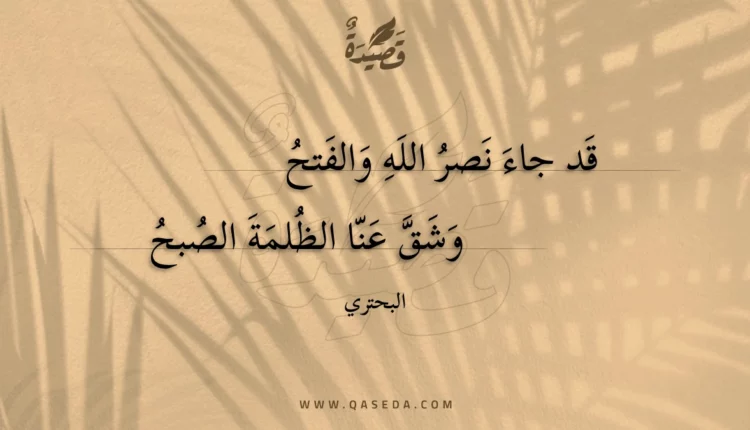 قَصِيْدَةٌ
قَد جاءَ نَصرُ اللَهِ وَالفَتحُ
وَشَقَّ عَنّا الظُلمَةَ الصُبحُ
البحتري
WWW.QASEDA.COM